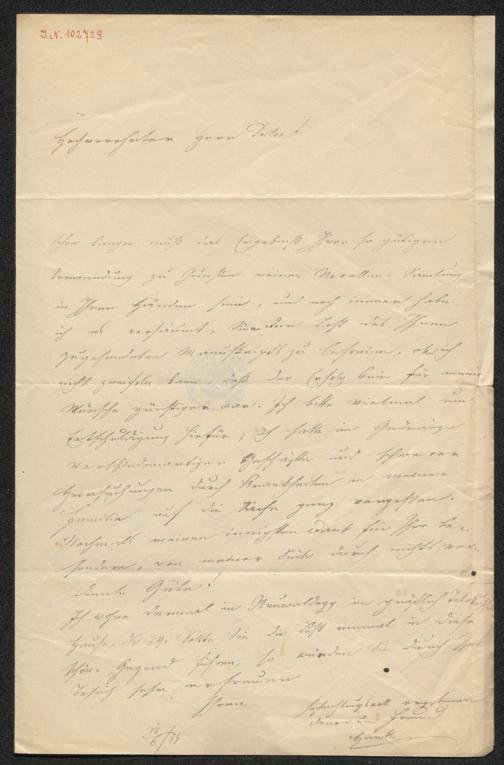 I.N. 102729
Hochverehrter Herr Doktor!
Schon lange muß das Ergebniß Ihrer so gütigen
Verwendung zu Gunsten meiner Novellen-Samlung
in Ihren Händen sein, und noch immer habe
ich es versäumt, Sie von der Last des Ihnen
zugesendeten Manuskripts zu befreien, obwohl ich
nicht zweifeln kann, daß der Erfolg kein für meine
Wünsche günstiger war. Ich bitte vielmal um
Entschuldigung hiefür, ich hatte im Gedränge
verschiedenartiger Geschäfte und schwerer
Heimsuchungen durch Krankheiten in meiner
Familie auf die Sache ganz vergessen.
Nochmals meinen innigsten Dank für Ihre be-
sondere, von meiner Seite durch nichts ver-
diente Güte!
Ich wohne dermal in Neuwaldegg im
Hause No 24. Sollte Sie die Lust einmal in diese
schöne Gegend führen, so würden Sie durch Ihren
Besuch sehr erfreuen
Ihren
hochachtungsvoll ergebenen
Diener und Freund